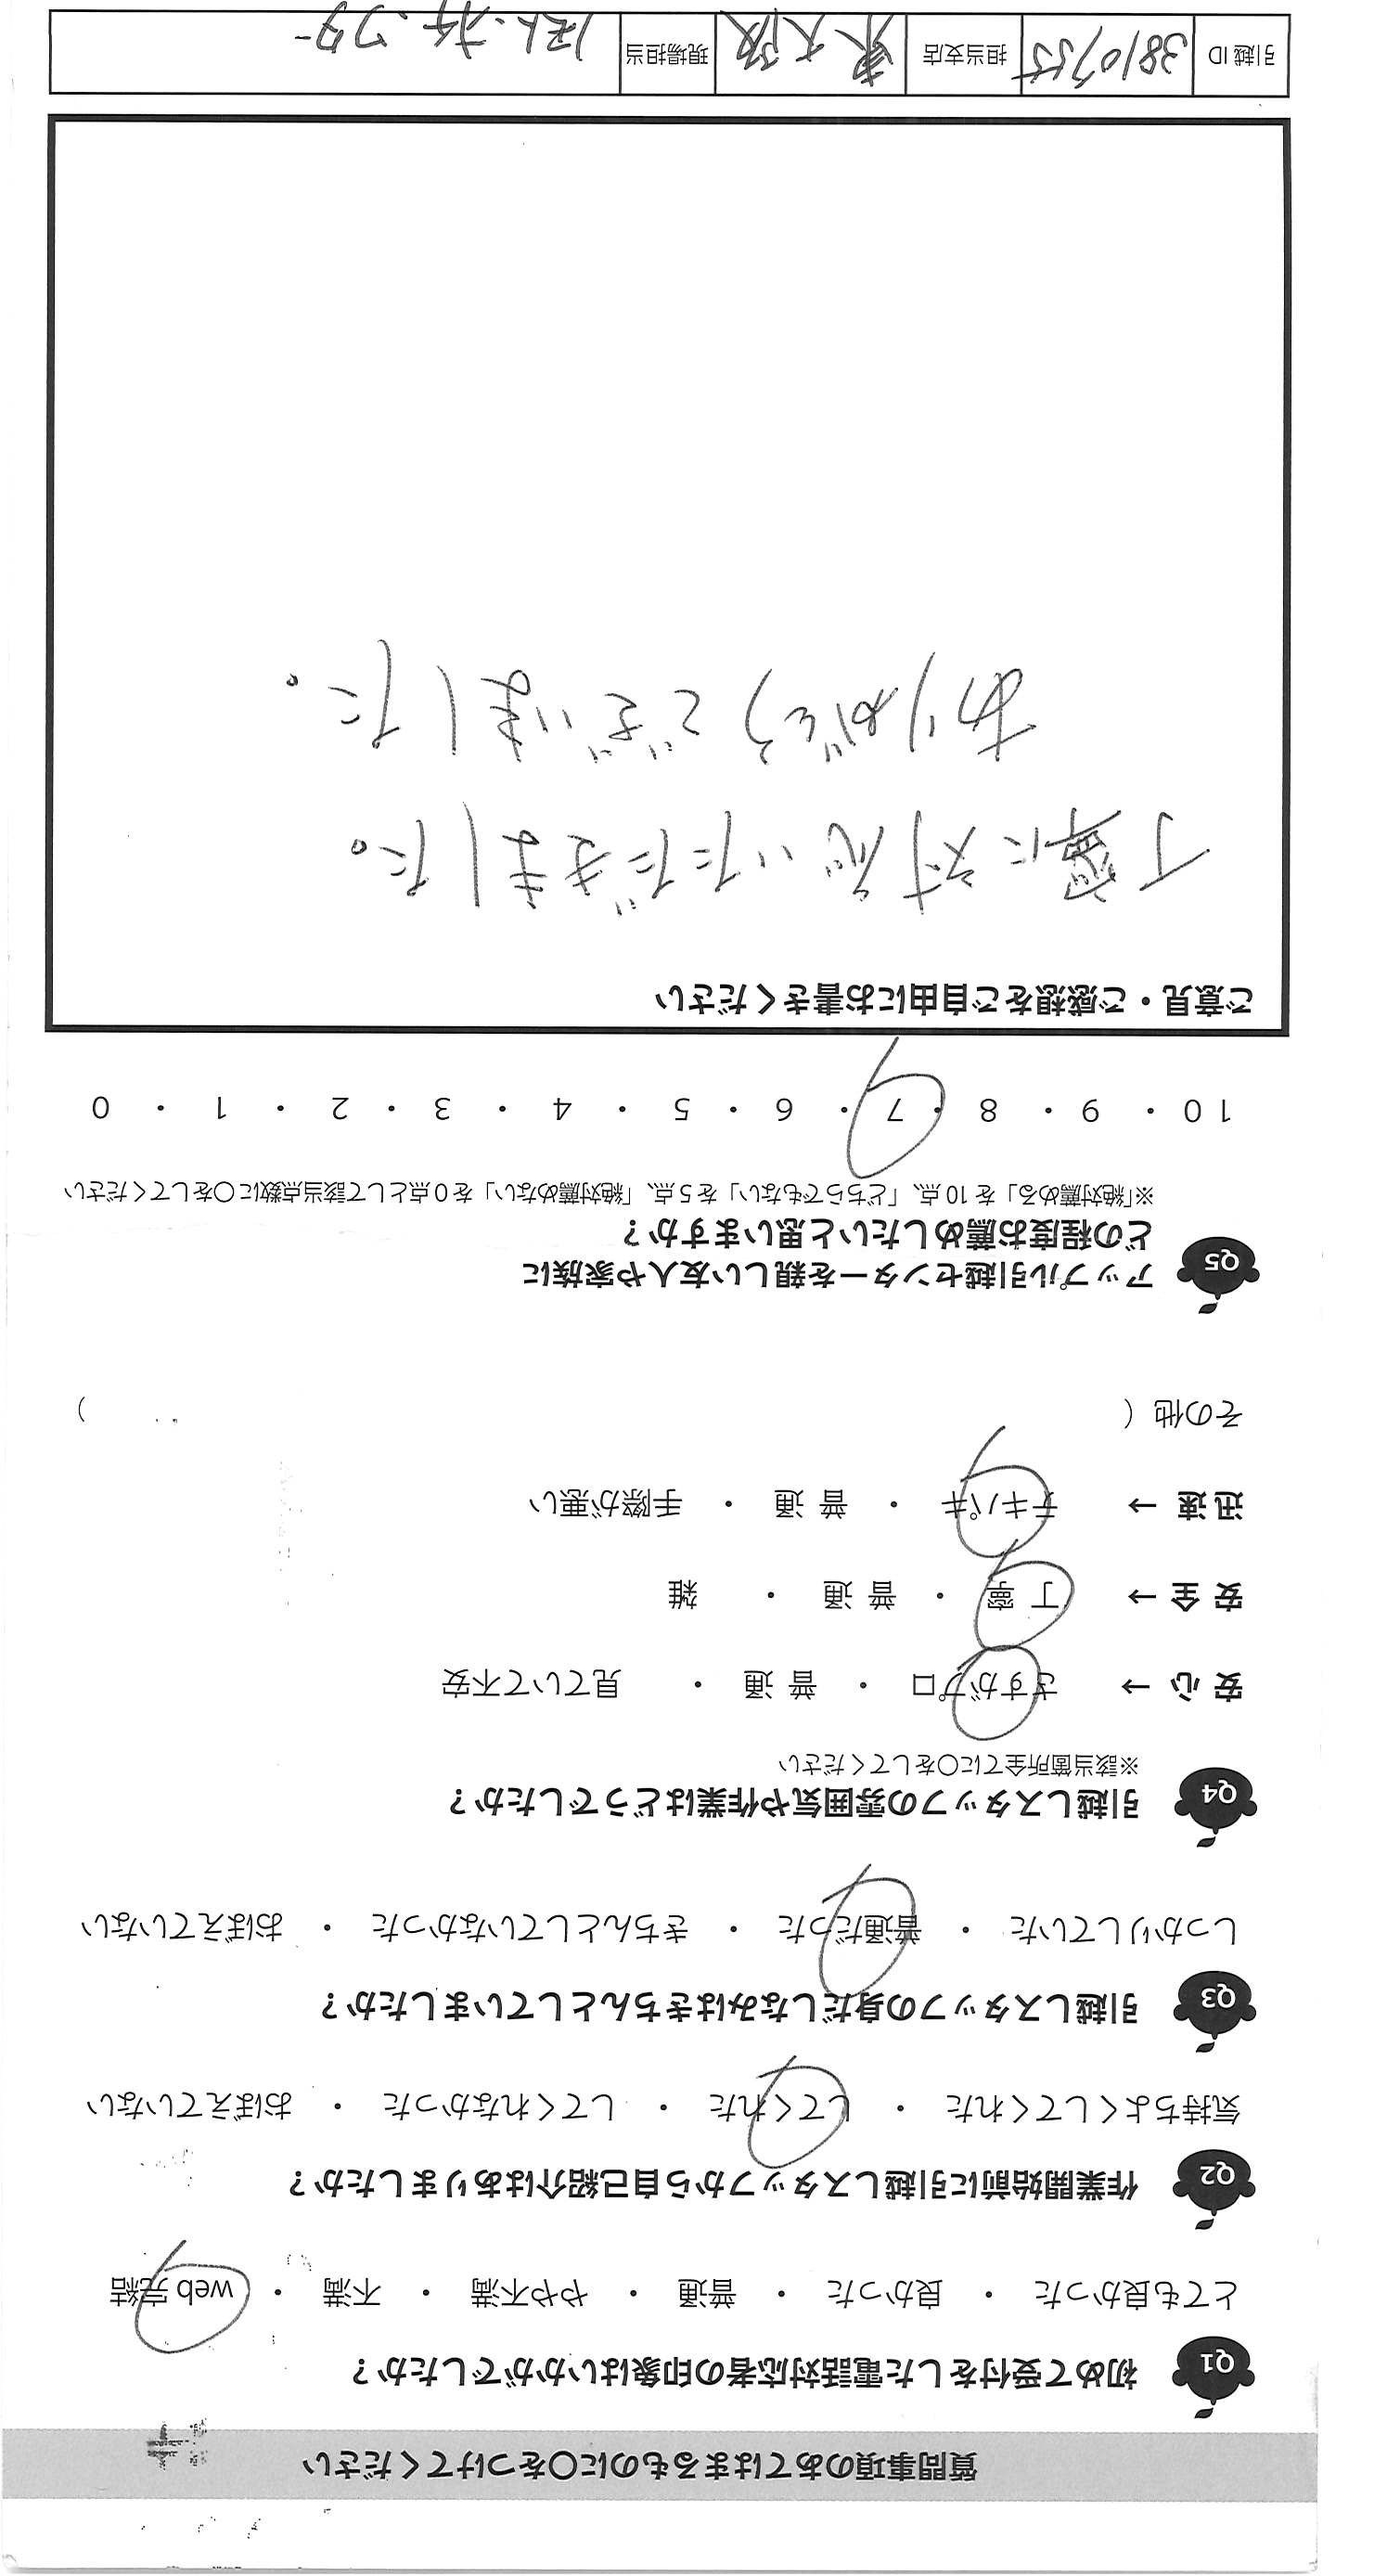 質問事項のあてはまるものに〇をつけてください
Q1 初めて受付をした電話対応者の印象はいかがでしたか？
とても良かった ・ 良かった ・ 普通 ・ やや不満 ・ 不満 ・ web 完結
Q2 作業開始前に引越しスタッフから自己紹介はありましたか？
気持ちよくしてくれた ・ してくれた ・ してくれなかった ・ おぼえていない
Q3 引越しスタッフの身だしなみはきちんとしていましたか？
しっかりしていた ・ 普通だった ・ きちんとしていなかった ・ おぼえていない
Q4 引越しスタッフの雰囲気や作業はどうでしたか？
※該当箇所全てに〇をしてください
安心 → さすがプロ ・ 普通 ・ 見ていて不安
安全 → 丁寧 ・ 普通 ・ 雑
迅速 → テキパキ ・ 普通 ・ 手際が悪い
その他（ ）
Q5 アップル引越センターを親しい友人や家族に
どの程度お薦めしたいと思いますか？
※「絶対薦める」を 10 点、「どちらでもない」を 5 点、「絶対薦めない」を 0 点として該当点数に〇をしてください
10 ・ 9 ・ 8 ・ 7 ・ 6 ・ 5 ・ 4 ・ 3 ・ 2 ・ 1 ・ 0
ご意見・ご感想をご自由にお書きください
丁寧に対応いただきました。
ありがとうございました。
引越 ID 3810755 担当支店 東大阪 現場担当